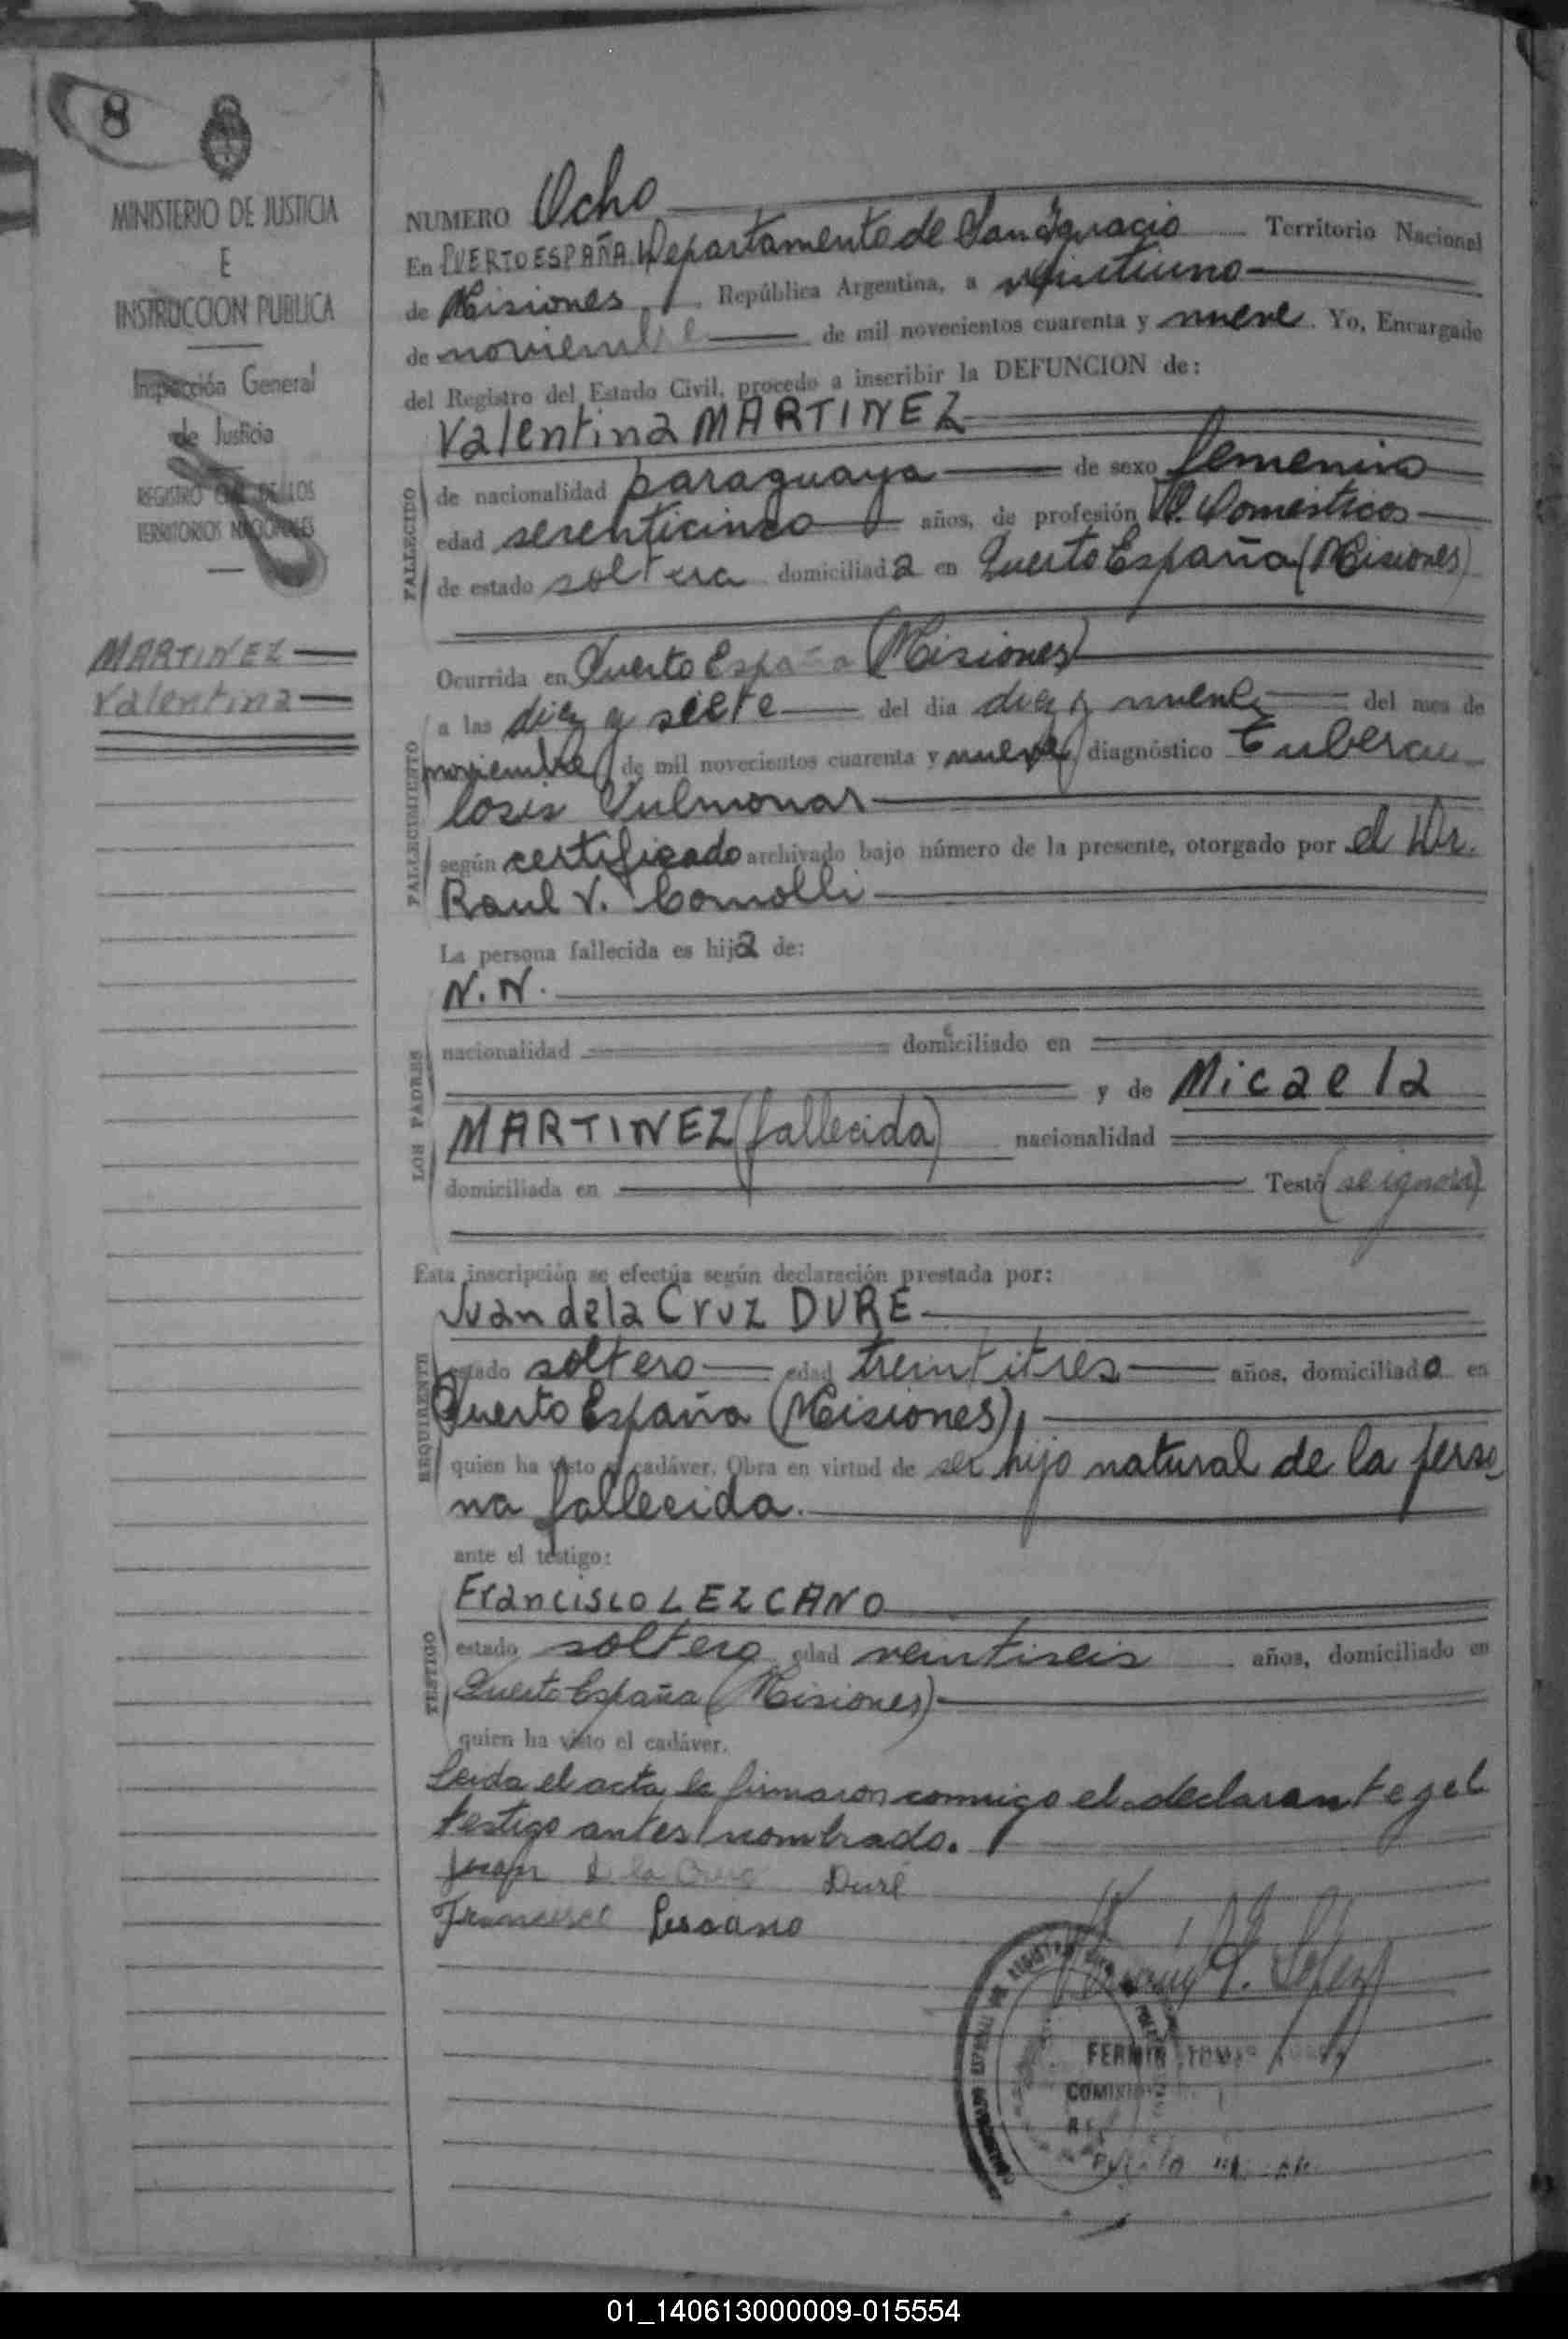 8
MINISTERIO DE JUSTICIA
E
INSTRUCCION PUBLICA
Inspección General
de Justicia
REGISTRO CIVIL DE LOS
TERRITORIOS NACIONALES
MARTINEZ
Valentina
NUMERO Ocho
En PUERTO ESPAÑA, Departamento de San Ignacio Territorio Nacional
de Misiones, República Argentina, a veintiuno
de noviembre de mil novecientos cuarenta y nueve. Yo, Encargado
del Registro del Estado Civil, procedo a inscribir la DEFUNCION de:
Valentina MARTINEZ
FALLECIDO
de nacionalidad paraguaya de sexo femenino
edad setenticinco años, de profesión Q. Domésticos
de estado soltera domiciliada en Puerto España (Misiones)
Ocurrida en Puerto España (Misiones)
FALLECIMIENTO
a las diez y siete del dia diez y nueve del mes de
noviembre de mil novecientos cuarenta y nueve, diagnóstico Tubercu
losis Pulmonar
según certificado archivado bajo número de la presente, otorgado por el Dr.
Raul V. Comolli
La persona fallecida es hija de:
N. N.
LOS PADRES
nacionalidad domiciliado en
y de Micaela
MARTINEZ (fallecida) nacionalidad
domiciliada en Testó (se ignora)
Esta inscripción se efectúa según declaración prestada por:
Juan de la Cruz DURE
REQUIRENTE
estado soltero edad treintitres años, domiciliado en
Puerto España (Misiones),
quien ha visto el cadáver. Obra en virtud de ser hijo natural de la perso
na fallecida.
ante el testigo:
Francisco LEZCANO
TESTIGO
estado soltero edad veintiseis años, domiciliado en
Puerto España (Misiones)
quien ha visto el cadáver.
Leida el acta, la firmaron conmigo el declarante y el
testigo antes nombrado.
Juan d la Cruz Duré
Francisco Lescano
FERMIN
01_140613000009-015554